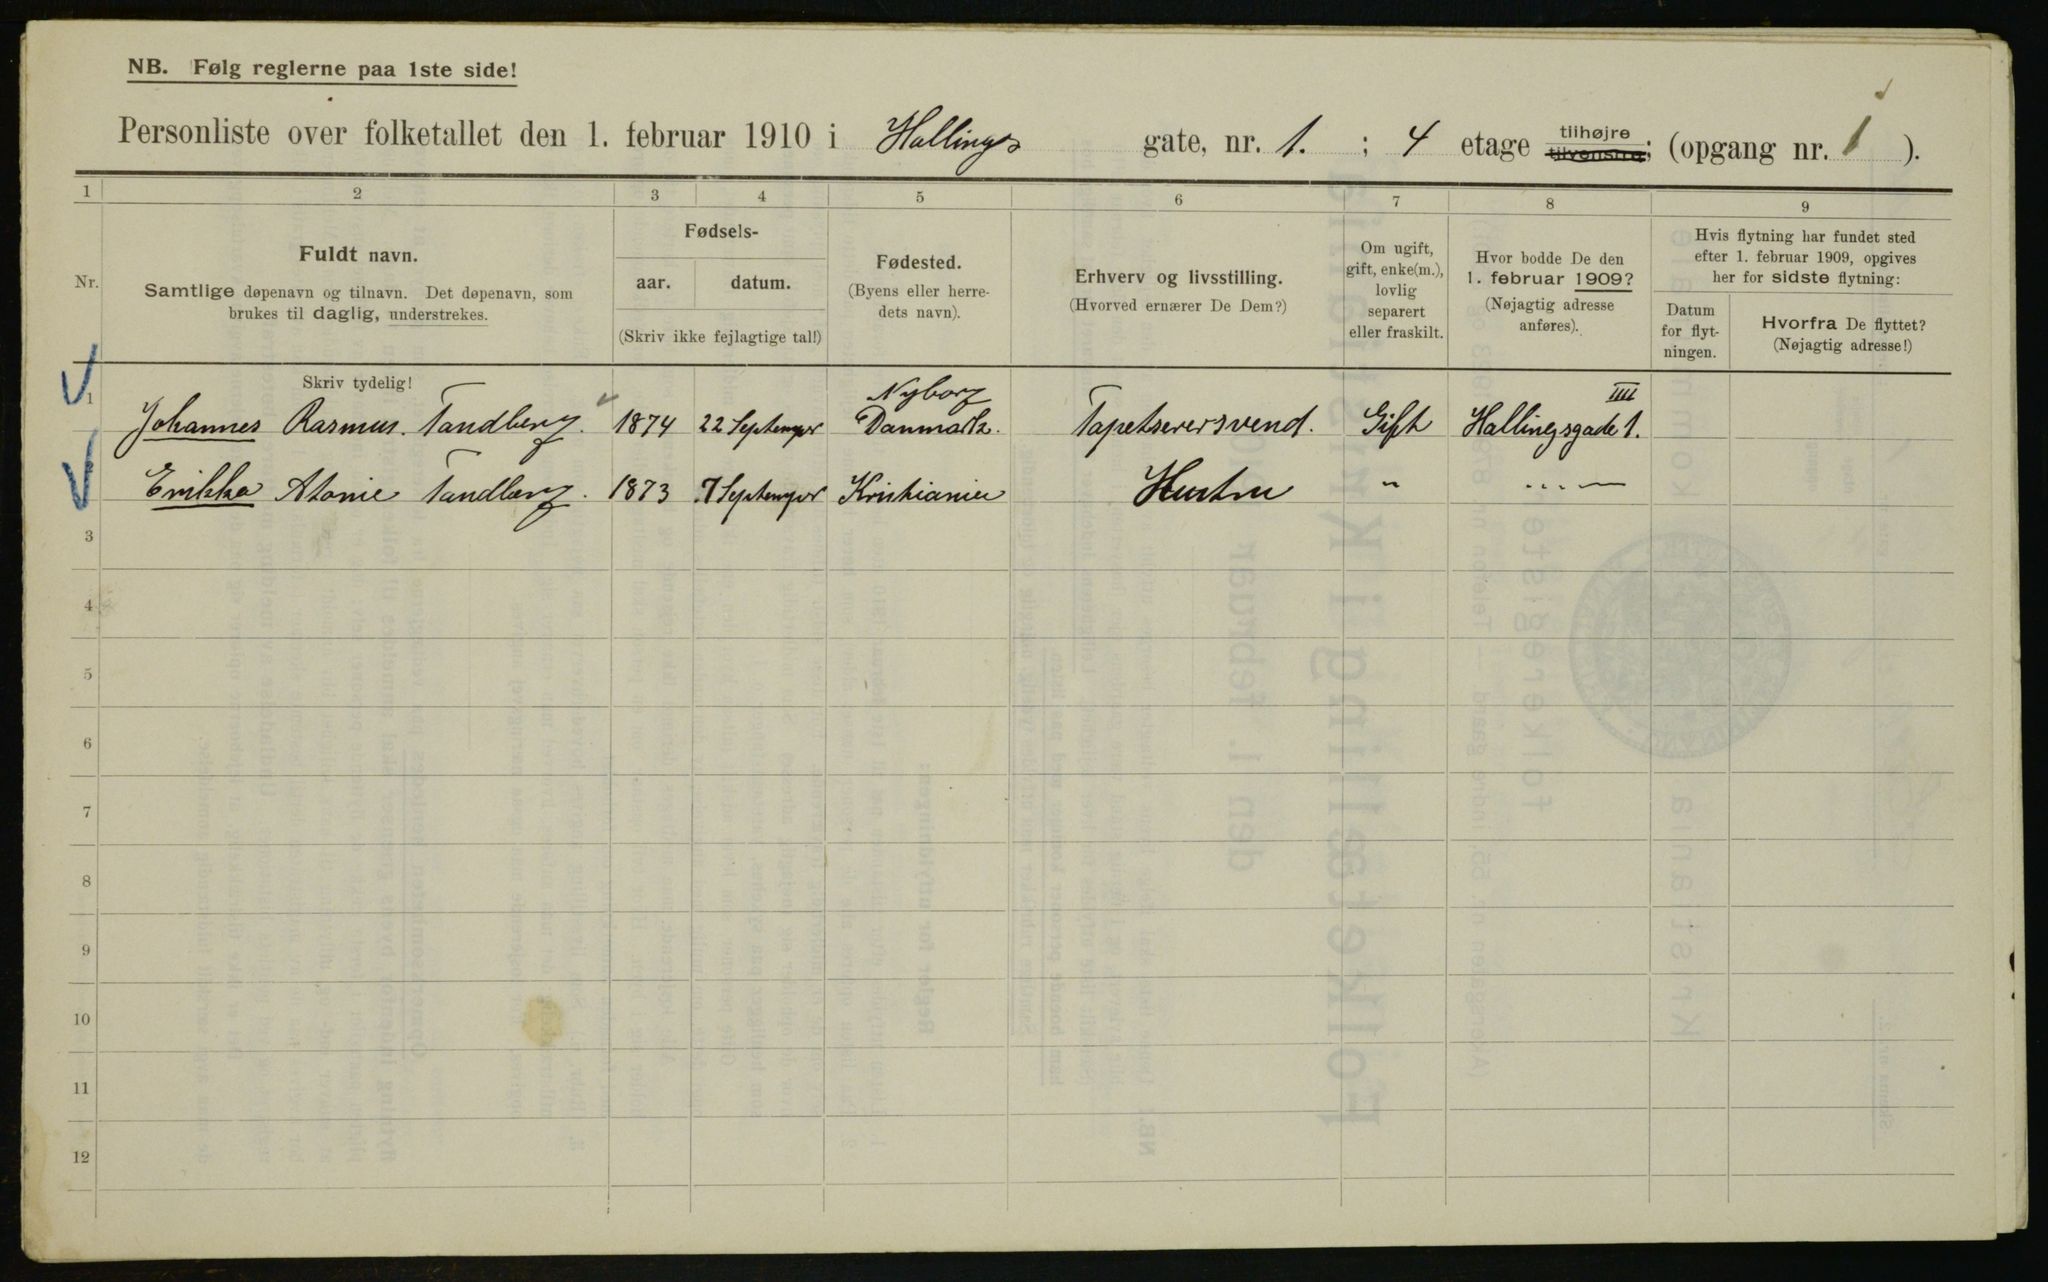 NB. Følg reglerne paa 1ste side!
Personliste over folketallet den 1. februar 1910 i Hallings gate, nr. 1. ; 4 etage tilhøjre tilvenstre; (opgang nr. 1 ).
1 2 3 4 5 6 7 8 9
Nr.
Fuldt navn.
Samtlige døpenavn og tilnavn. Det døpenavn, som
brukes til daglig, understrekes.
Skriv tydelig!
Fødsels-
aar. datum.
(Skriv ikke fejlagtige tal!)
Fødested.
(Byens eller herre-
dets navn).
Erhverv og livsstilling.
(Hvorved ernærer De Dem?)
Om ugift,
gift, enke(m.),
lovlig
separert
eller fraskilt.
Hvor bodde De den
1. februar 1909?
(Nøjagtig adresse
anføres).
Hvis flytning har fundet sted
efter 1. februar 1909, opgives
her for sidste flytning:
Datum
for flyt-
ningen.
Hvorfra De flyttet?
(Nøjagtig adresse!)
Nyborg IIII
1 Johannes Rasmus. Tandberg. 1874 22 Septemper Danmark. Tapetserersvend. Gift Hallingsgade 1.
Enikka Atonie Tandberg. 1873 7 Septemper Kristiania Hustru " " —
3
4
5
6
7
8
9
10
11
12